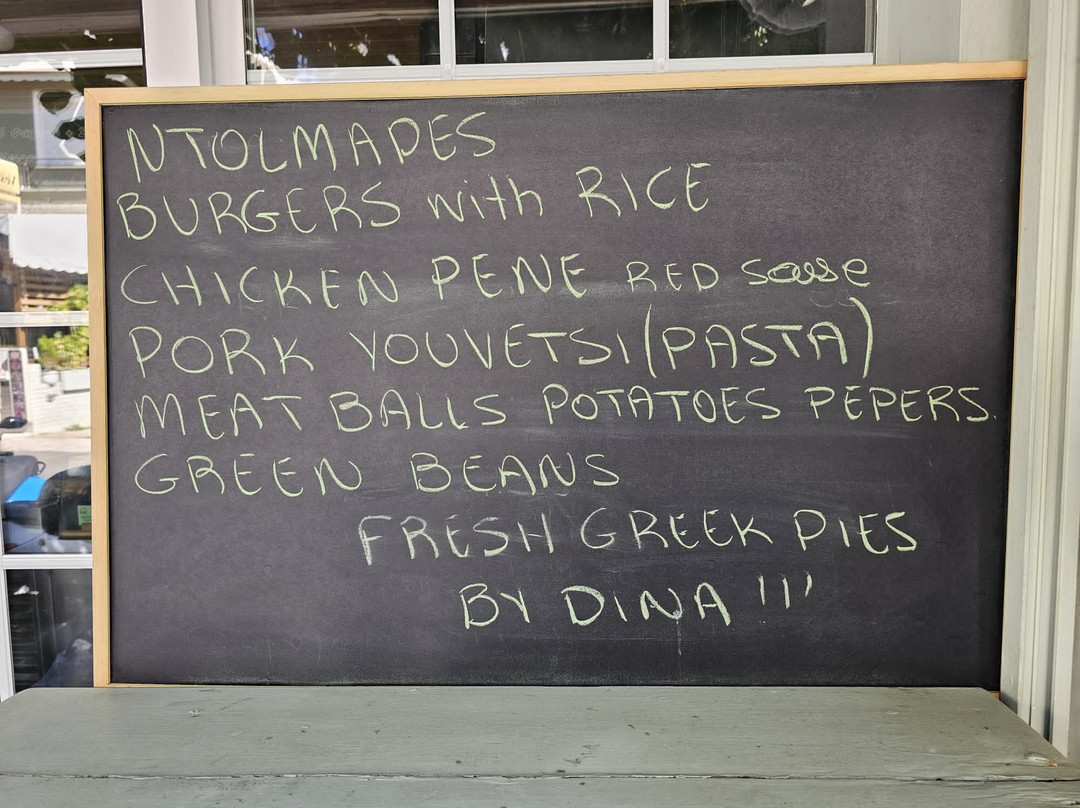 NTOLMADES
BURGERS with RICE
CHICKEN PENE RED sause
PORK YOUVETSI (PASTA)
MEAT BALLS POTATOES PEPERS.
GREEN BEANS
FRESH GREEK PIES
BY DINA !!!